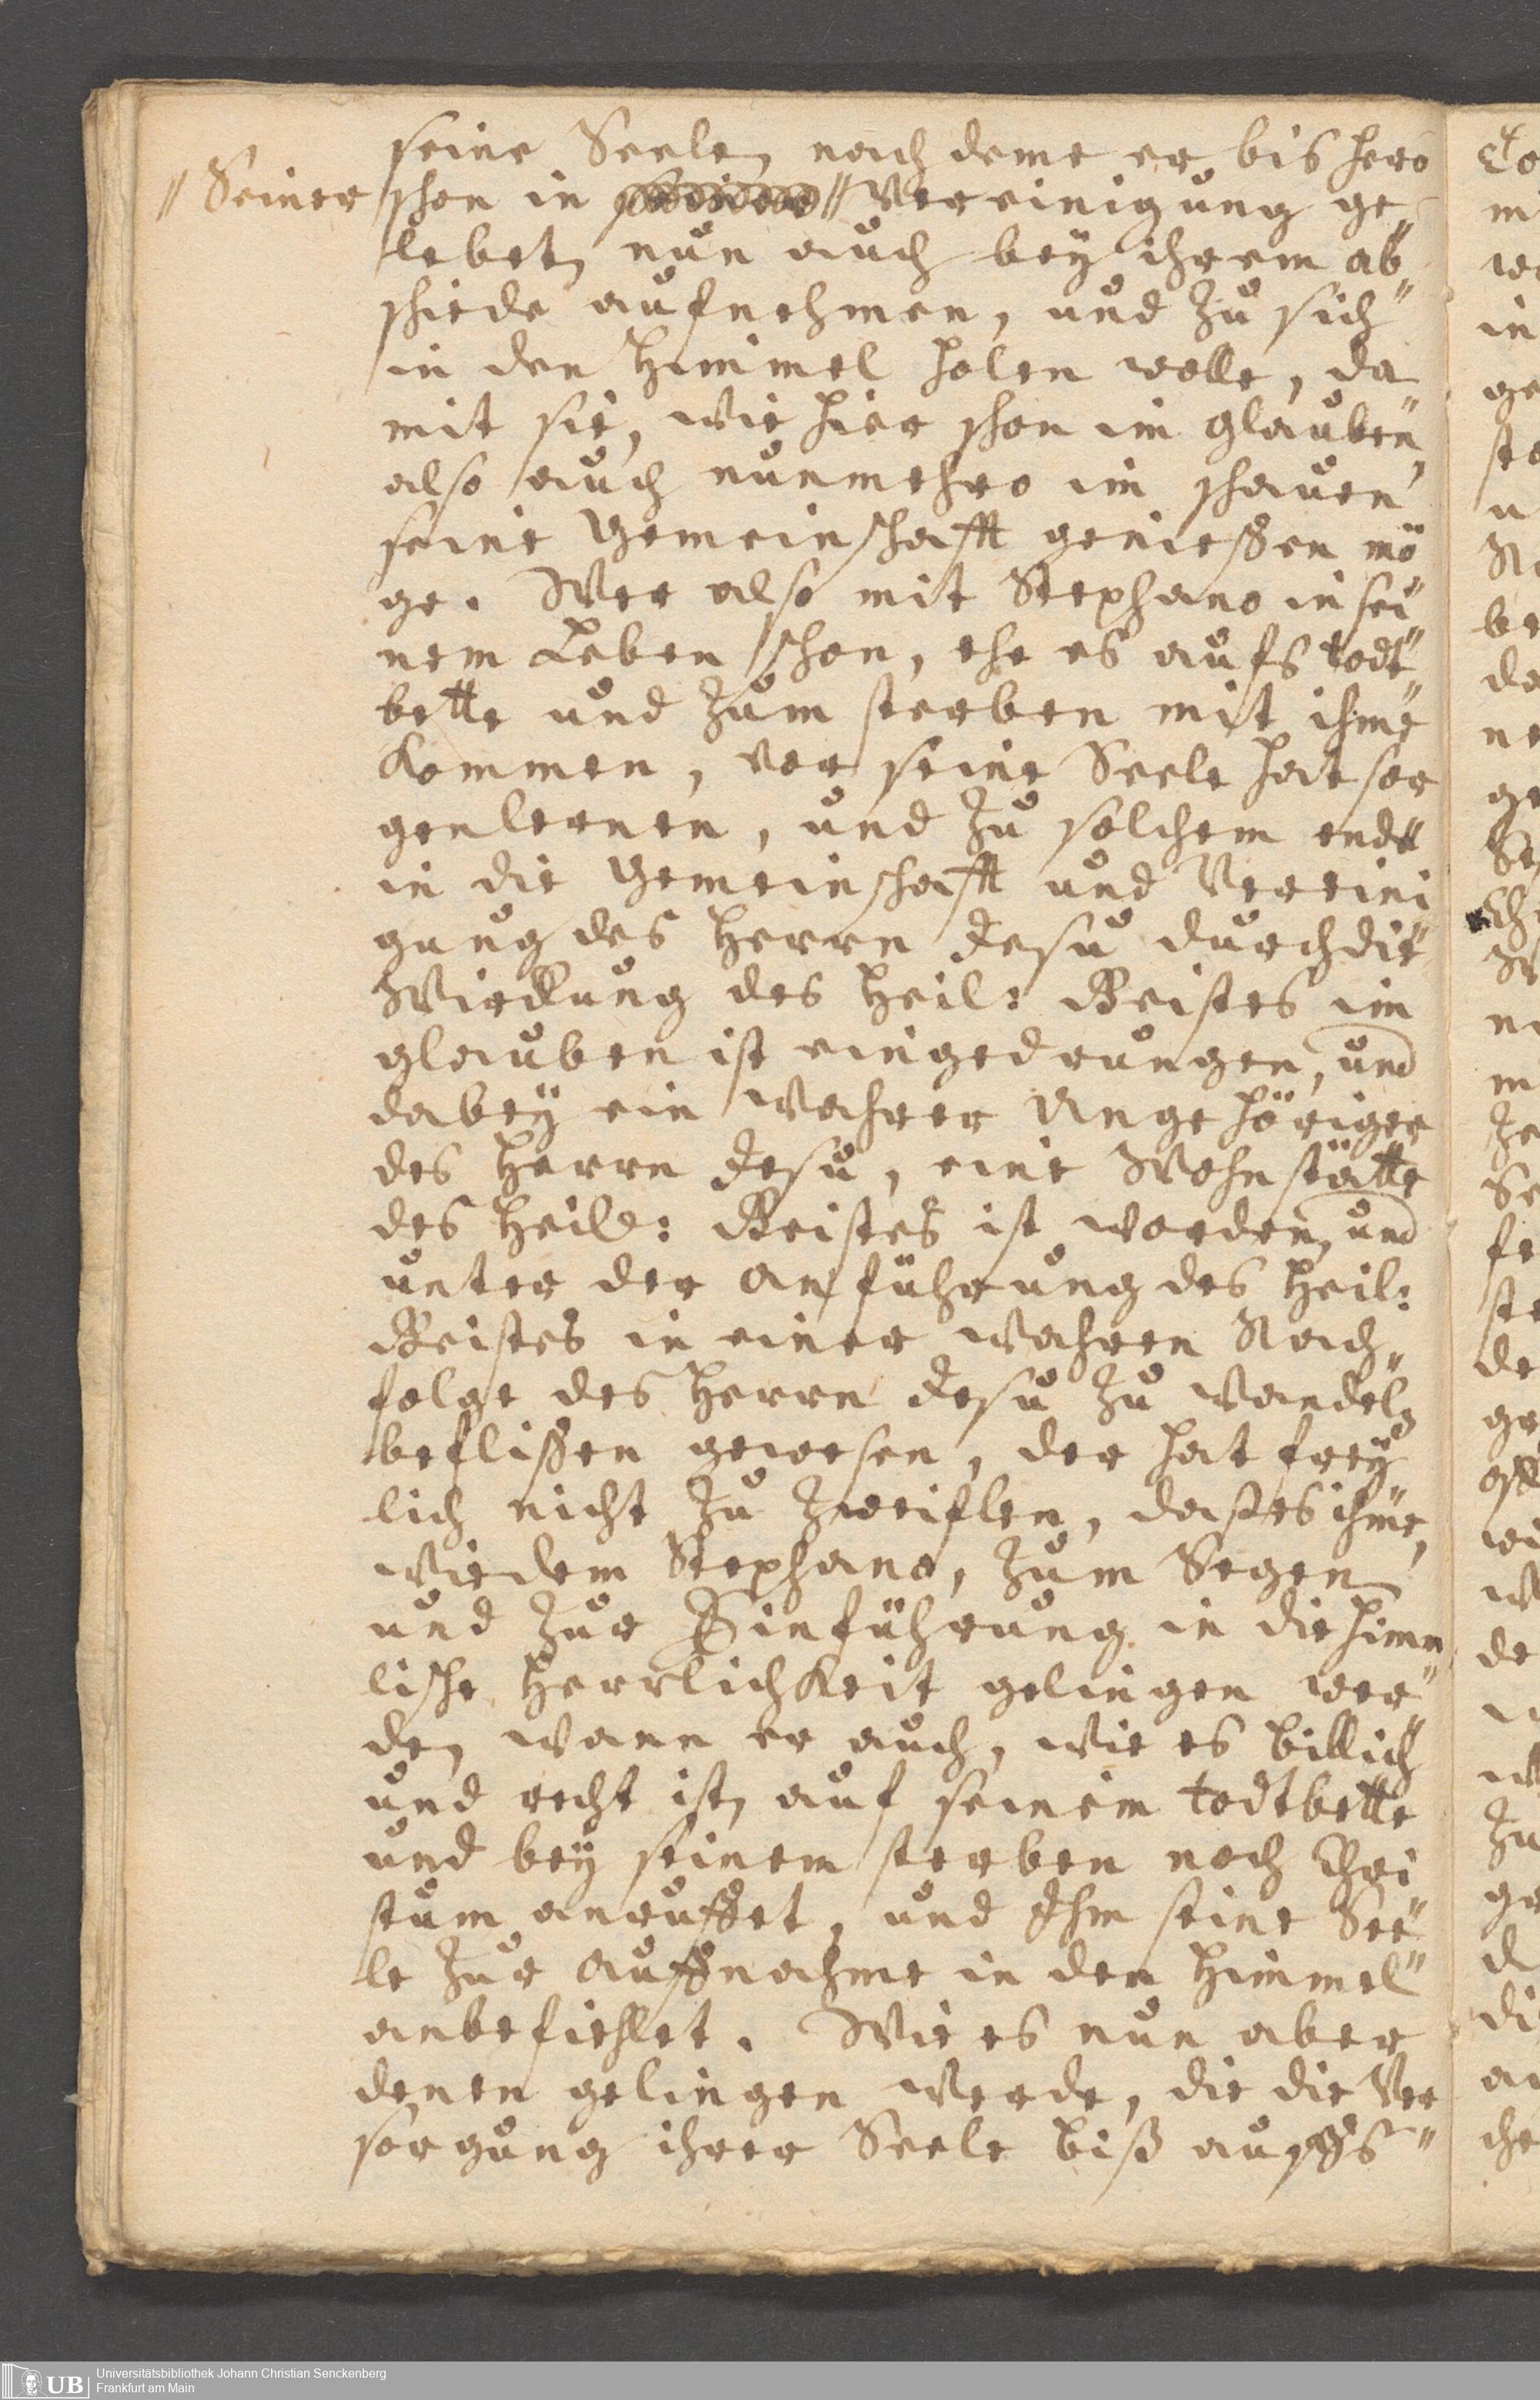 seine Seele, nach deme er bis hero
" Seiner schon in " Vereinigung ge-
lebet, nun auch bey ihrem ab"
schiede aufnehmen, und zu sich"
in den Himmel holen wolle, da
mit sie, wie hier schon im glauben"
also auch nunmehro im schauen,
seine Gemeinschafft genießen mö
ge. Wer also mit Stephano in sei"
nem Leben schon, ehe es aufs todt"
bette und zum sterben mit ihme
kommen, vor seine Seele hat sor
gen lernen, und zu solchem ende
in die Gemeinschafft und Vereini
gung des Herrn Jesu durch die
Wirckung des Heil: Geistes im
glauben ist eingedrungen, und
dabey ein wahrer Angehöriger
des Herrn Jesu, eine Wohnstätte
des Heil: Geistes ist worden, und
unter der anführung des Heil:
Geistes in einer wahren Nach"
folge des Herrn Jesu zu wandeln
beflißen gewesen, der hat frey
lich nicht zu zweiflen, daß es ihme,
wie dem Stephano, zum Segen
und zur Einführung in die himm
lische Herrlichkeit gelingen wer"
de, wann er auch, wie es billich
und recht ist, auf seinem todtbette
und bey seinem sterben noch Chri
stum anruffet, und Ihm seine See"
le zur auffnahme in den Himmel"
anbefiehlet. Wie es nun aber
denen gelingen werde, die die Ver
sorgung ihrer Seele biß auffs"
UB
Universitätsbibliothek Johann Christian Senckenberg
Frankfurt am Main